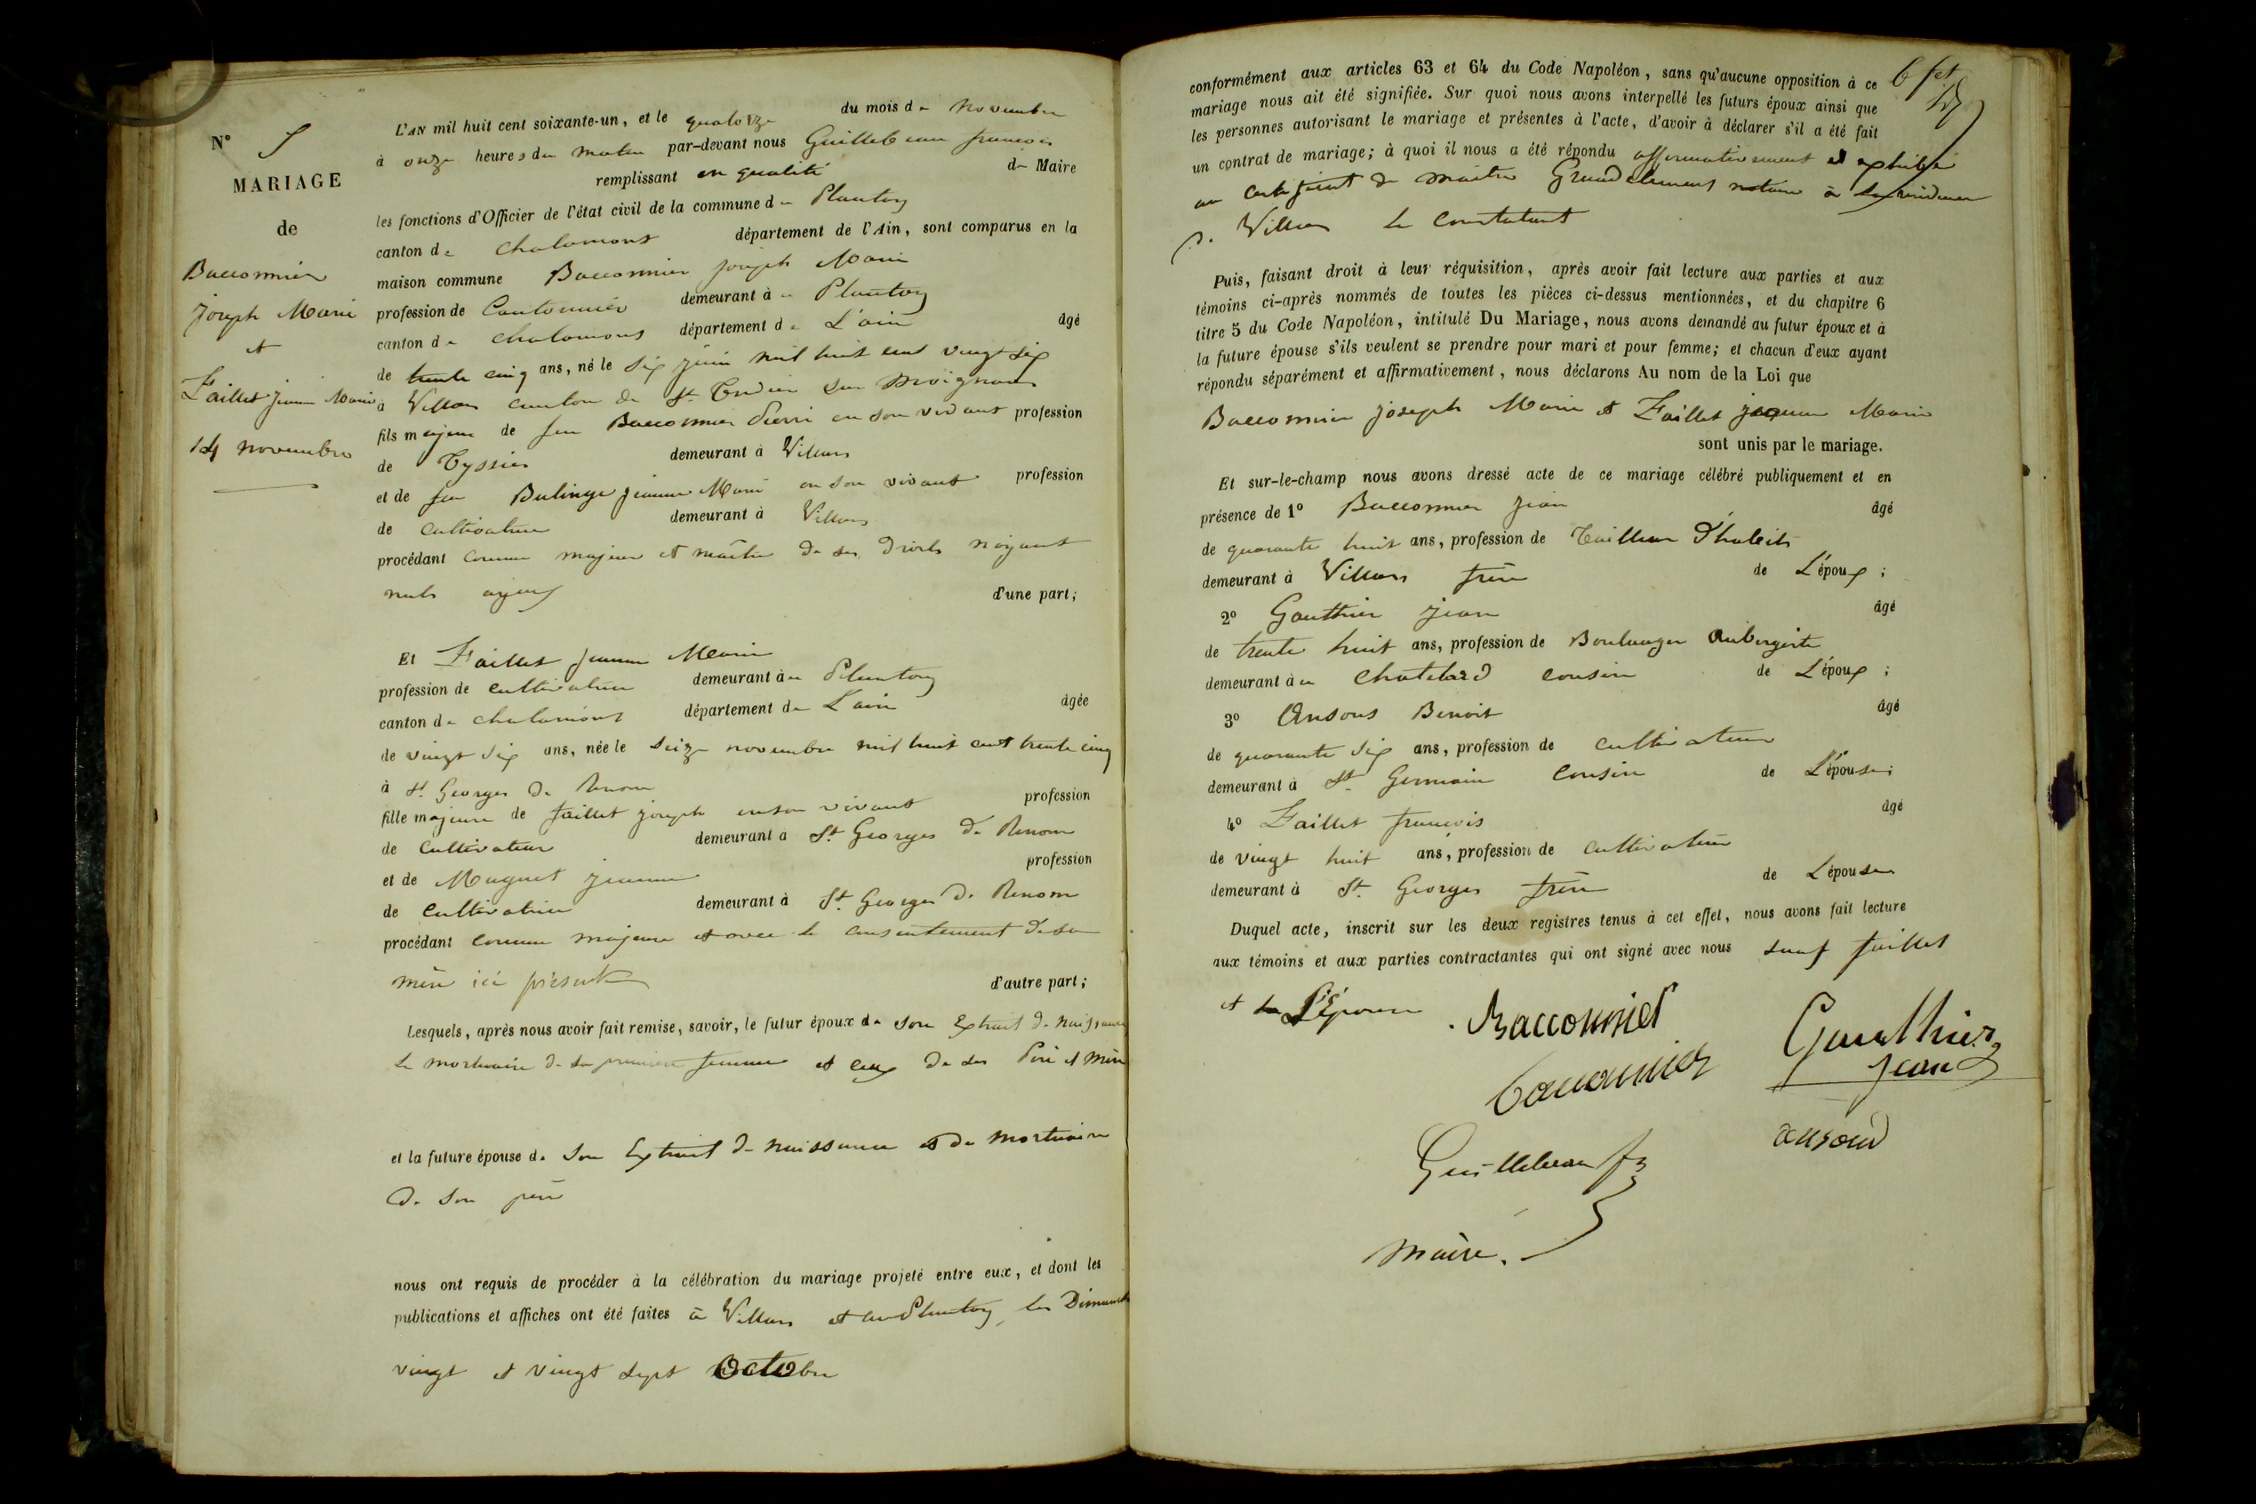 N° 5
MARIAGE
de
Bacconnier
joseph Marie
et
Faillet jeanne Marie
14 novembre
L'AN mil huit cent soixante-un, et le quatorze du mois de novembre
à onze heures du matin par-devant nous Guillebeau françois
remplissant en qualité de Maire
les fonctions d'Officier de l'état civil de la commune du Plantay
canton de chalamont département de l'Ain, sont comparus en la
maison commune Bacconnier joseph Marie
profession de Cantonnier demeurant à au Plantay
canton de chalamont département de L'ain âgé
de trente cinq ans, né le six juin mil huit cent vingt six
à Villars canton de St Trivier sur Moignans
fils majeur de feu Bacconnier Pierre en son vivant profession
de Tyssier demeurant à Villars
et de feu Bulinge jeanne Marie en son vivant profession
de cultivatrice demeurant à Villars
procédant comme majeur et maître de ses droits n'ayant
nuls ayeux d'une part;
Et Faillet jeanne Marie
profession de cultivatrice demeurant à au Plantay
canton de chalamont département de L'ain âgée
de vingt six ans, née le seize novembre mil huit cent trente cinq
à St Georges de Renom
fille majeure de faillet joseph en son vivant profession
de cultivateur demeurant à St Georges de Renom
et de Muguet jeanne profession
de cultivatrice demeurant à St Georges de Renom
procédant comme majeure et avec le consentement de sa
mère ici présente d'autre part;
Lesquels, après nous avoir fait remise, savoir, le futur époux de son Extrait de Naissance
le mortuaire de sa première femme et ceux de ses Père et Mère
et la future épouse de son Extrait de naissance et du mortuaire
de son père
nous ont requis de procéder à la célébration du mariage projeté entre eux, et dont les
publications et affiches ont été faites à Villars et au Plantay, les Dimanches
vingt et vingt sept Octobre
conformément aux articles 63 et 64 du Code Napoléon, sans qu'aucune opposition à ce
mariage nous ait été signifiée. Sur quoi nous avons interpellé les futurs époux ainsi que
les personnes autorisant le mariage et présentes à l'acte, d'avoir à déclarer s'il a été fait
un contrat de mariage; à quoi il nous a été répondu affirmativement et exhibé
un certificat de maître Grandclement notaire à la résidence
de Villars le constatant
Puis, faisant droit à leur réquisition, après avoir fait lecture aux parties et aux
témoins ci-après nommés de toutes les pièces ci-dessus mentionnées, et du chapitre 6
titre 5 du Code Napoléon, intitulé Du Mariage, nous avons demandé au futur époux et à
la future épouse s'ils veulent se prendre pour mari et pour femme; et chacun d'eux ayant
répondu séparément et affirmativement, nous déclarons Au nom de la Loi que
Bacconnier joseph Marie et Faillet jeanne Marie
sont unis par le mariage.
Et sur-le-champ nous avons dressé acte de ce mariage célébré publiquement et en
présence de 1° Bacconnier jean âgé
de quarante huit ans, profession de Tailleur d'habits
demeurant à Villars frère de L'époux;
2° Gauthier jean âgé
de trente huit ans, profession de Boulanger Aubergiste
demeurant à au chatelard cousin de L'époux;
3° Ansous Benoit âgé
de quarante six ans, profession de cultivateur
demeurant à St Germain cousin de L'épouse;
4° Faillet françois âgé
de vingt huit ans, profession de cultivateur
demeurant à St Georges frère de L'épouse
Duquel acte, inscrit sur les deux registres tenus à cet effet, nous avons fait lecture
aux témoins et aux parties contractantes qui ont signé avec nous sauf faillet
et L'épouse
Bacconnier
Bacconnier
Gauthier
jean
ansoud
Guillebeau fs
Maire.